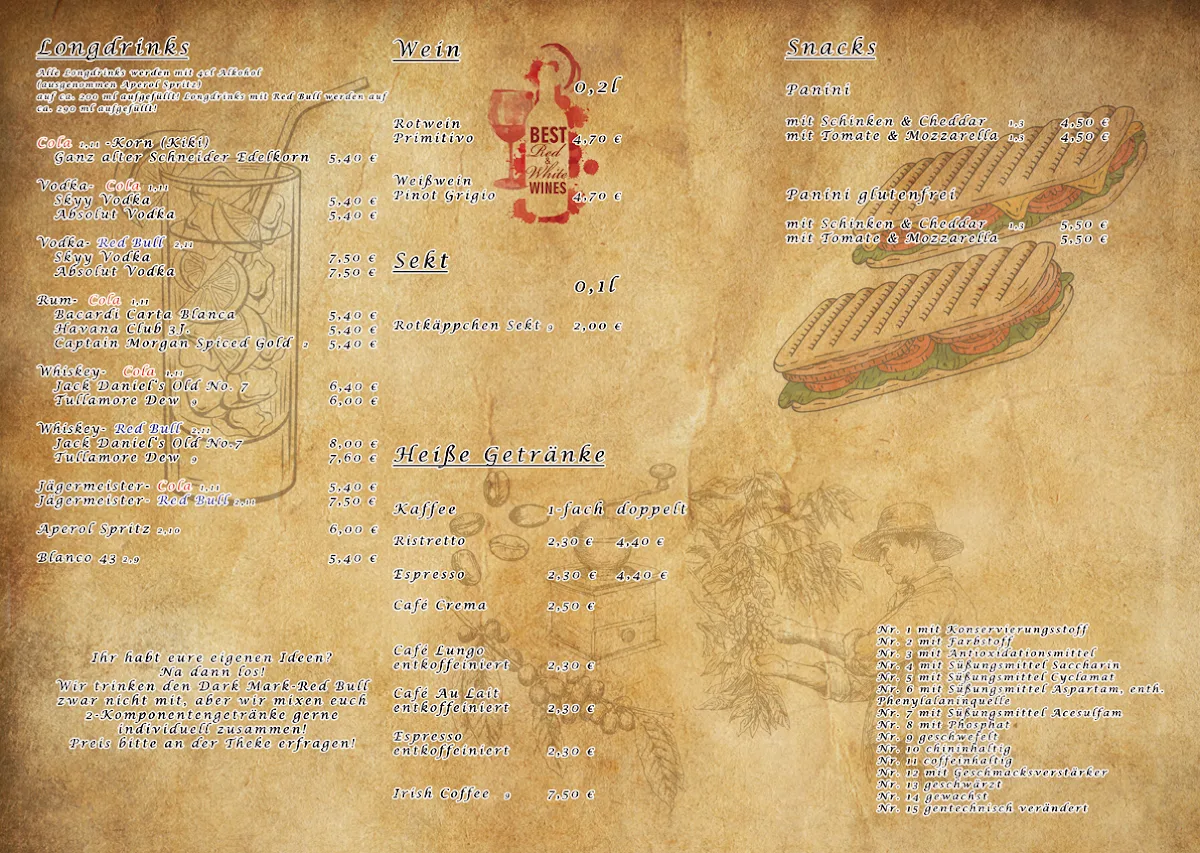 Longdrinks
Alle Longdrinks werden mit 4cl Alkohol
(ausgenommen Aperol Spritz)
auf ca. 200 ml aufgefüllt! Longdrinks mit Red Bull werden auf
ca. 290 ml aufgefüllt!
Cola 1,11 -Korn (Kiki)
Ganz alter Schneider Edelkorn 5,40 €
Vodka- Cola 1,11
Skyy Vodka 5,40 €
Absolut Vodka 5,40 €
Vodka- Red Bull 2,11
Skyy Vodka 7,50 €
Absolut Vodka 7,50 €
Rum- Cola 1,11
Bacardi Carta Blanca 5,40 €
Havana Club 3J. 5,40 €
Captain Morgan Spiced Gold 2 5,40 €
Whiskey- Cola 1,11
Jack Daniel's Old No. 7 6,40 €
Tullamore Dew 9 6,00 €
Whiskey- Red Bull 2,11
Jack Daniel's Old No.7 8,00 €
Tullamore Dew 9 7,60 €
Jägermeister- Cola 1,11 5,40 €
Jägermeister- Red Bull 2,11 7,50 €
Aperol Spritz 2,10 6,00 €
Blanco 43 2,9 5,40 €
Ihr habt eure eigenen Ideen?
Na dann los!
Wir trinken den Dark Mark-Red Bull
zwar nicht mit, aber wir mixen euch
2-Komponentengetränke gerne
individuell zusammen!
Preis bitte an der Theke erfragen!
Wein
0,2l
Rotwein
Primitivo 4,70 €
Weißwein
Pinot Grigio 4,70 €
BEST
Red
&
White
WINES
Sekt
0,1l
Rotkäppchen Sekt 9 2,00 €
Heiße Getränke
Kaffee 1-fach doppelt
Ristretto 2,30 € 4,40 €
Espresso 2,30 € 4,40 €
Café Crema 2,50 €
Café Lungo
entkoffeiniert 2,30 €
Café Au Lait
entkoffeiniert 2,30 €
Espresso
entkoffeiniert 2,30 €
Irish Coffee 9 7,50 €
Snacks
Panini
mit Schinken & Cheddar 1,3 4,50 €
mit Tomate & Mozzarella 1,3 4,50 €
Panini glutenfrei
mit Schinken & Cheddar 1,3 5,50 €
mit Tomate & Mozzarella 5,50 €
Nr. 1 mit Konservierungsstoff
Nr. 2 mit Farbstoff
Nr. 3 mit Antioxidationsmittel
Nr. 4 mit Süßungsmittel Saccharin
Nr. 5 mit Süßungsmittel Cyclamat
Nr. 6 mit Süßungsmittel Aspartam, enth.
Phenylalaninquelle
Nr. 7 mit Süßungsmittel Acesulfam
Nr. 8 mit Phosphat
Nr. 9 geschwefelt
Nr. 10 chininhaltig
Nr. 11 coffeinhaltig
Nr. 12 mit Geschmacksverstärker
Nr. 13 geschwärzt
Nr. 14 gewachst
Nr. 15 gentechnisch verändert